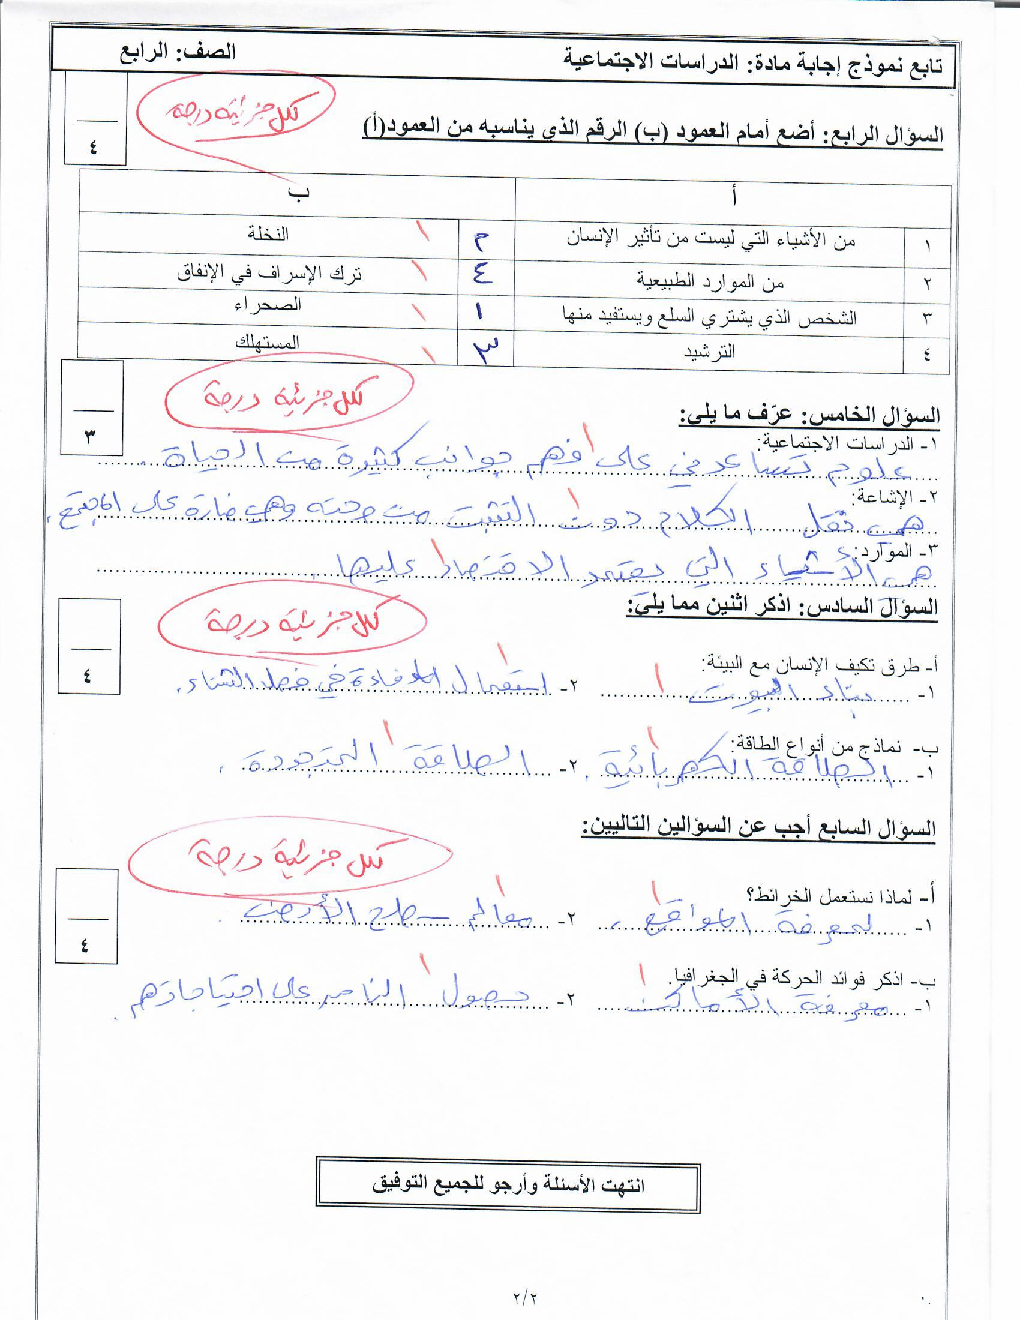 تابع نموذج إجابة مادة: الدراسات الاجتماعية الصف: الرابع
لكل جزئية درجة
السؤال الرابع: أضع أمام العمود (ب) الرقم الذي يناسبه من العمود(أ)
٤
أ ب
١ من الأشياء التي ليست من تأثير الإنسان ٢ النخلة ١
٢ من الموارد الطبيعية ٤ ترك الإسراف في الإنفاق ١
٣ الشخص الذي يشتري السلع ويستفيد منها ١ الصحراء ١
٤ الترشيد ٣ المستهلك ١
لكل جزئية درجة
السؤال الخامس: عرّف ما يلي:
٣
١- الدراسات الاجتماعية:
علوم تساعدني على فهم جوانب كثيرة من الحياة. ١
٢- الإشاعة:
هي نقل الكلام دون التثبت من صحته وهي ضارة على المجتمع. ١
٣- الموارد:
هي الأشياء التي يعتمد الاقتصاد عليها. ١
السؤال السادس: اذكر اثنين مما يلي:
لكل جزئية درجة
٤
أ- طرق تكيف الإنسان مع البيئة:
١- بناء البيوت ١ ٢- استعمال المدفأة في فصل الشتاء. ١
ب- نماذج من أنواع الطاقة:
١- الطاقة الكهربائية. ١ ٢- الطاقة المتجددة. ١
السؤال السابع أجب عن السؤالين التاليين:
لكل جزئية درجة
٤
أ- لماذا نستعمل الخرائط؟
١- لمعرفة المواقع. ١ ٢- معالم سطح الأرض. ١
ب- اذكر فوائد الحركة في الجغرافيا.
١- معرفة الأماكن ١ ٢- حصول الناس على احتياجاتهم. ١
انتهت الأسئلة وأرجو للجميع التوفيق
٢/٢